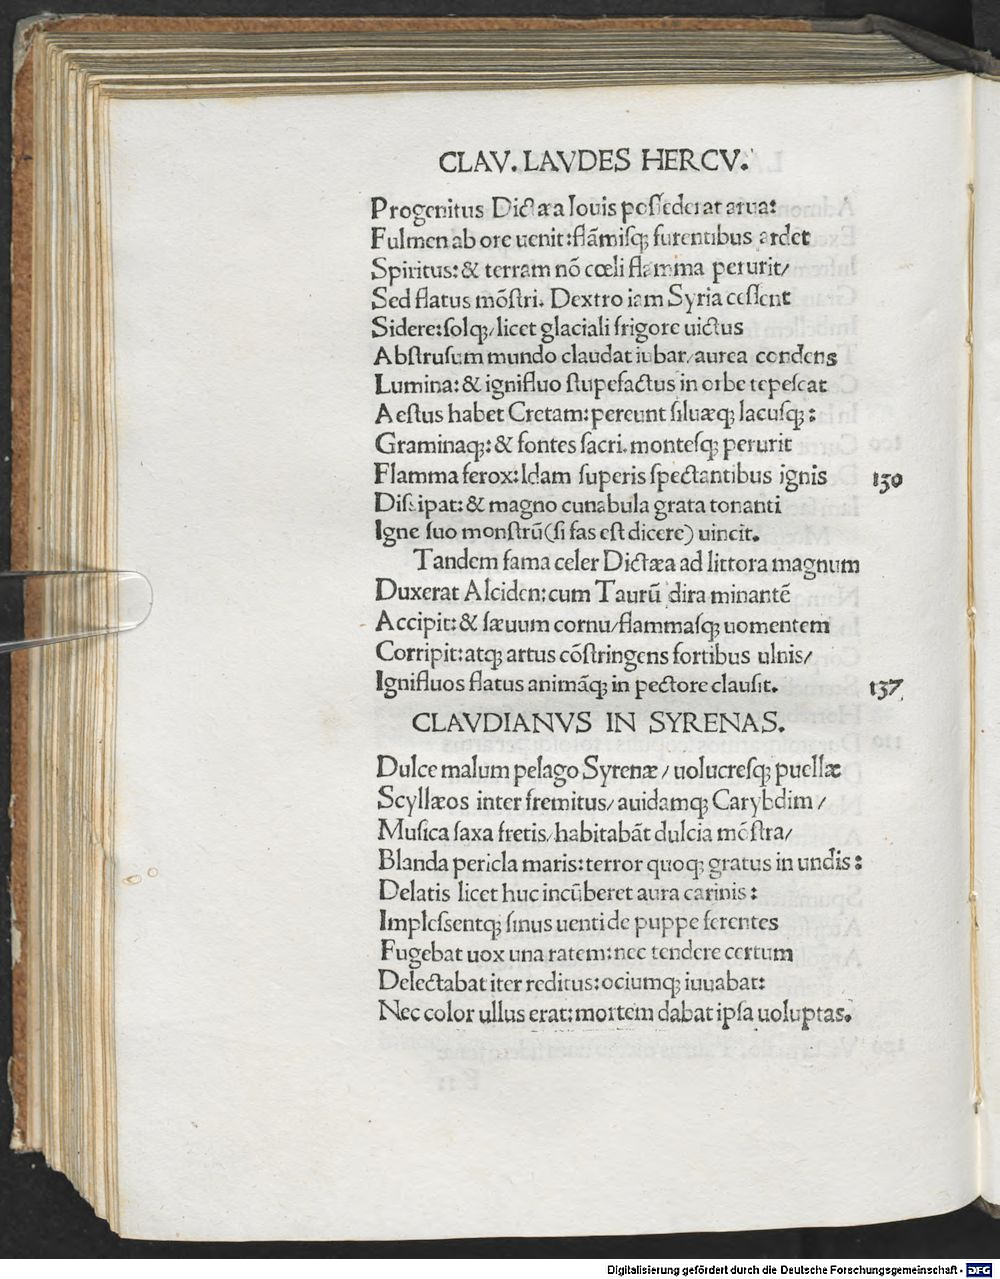 CLAV. LAVDES HERCV.
Progenitus Dictæa Iouis possederat arua:
Fulmen ab ore uenit: flãmisq; furentibus ardet
Spiritus: & terram nõ cœli flamma perurit/
Sed flatus mõstri. Dextro iam Syria cessent
Sidere: solq;/ licet glaciali frigore uictus
Abstrusum mundo claudat iubar/ aurea condens
Lumina: & ignifluo stupefactus in orbe tepescat
Aestus habet Cretam: pereunt siluæq; lacusq;:
Graminaq;: & fontes sacri. montesq; perurit
Flamma ferox: Idam superis spectantibus ignis 130
Dissipat: & magno cunabula grata tonanti
Igne suo monstrũ (si fas est dicere) uincit.
Tandem fama celer Dictæa ad littora magnum
Duxerat Alciden: cum Taurũ dira minantẽ
Accipit: & sæuum cornu/ flammasq; uomentem
Corripit: atq; artus cõstringens fortibus ulnis/
Ignifluos flatus animãq; in pectore clausit. 137
CLAVDIANVS IN SYRENAS.
Dulce malum pelago Syrenæ/ uolucresq; puellæ
Scyllæos inter fremitus/ auidamq; Carybdim/
Musica saxa fretis/ habitabãt dulcia mõstra/
Blanda pericla maris: terror quoq; gratus in undis:
Delatis licet huc incũberet aura carinis:
Implessentq; sinus uenti de puppe ferentes
Fugebat uox una ratem: nec tendere certum
Delectabat iter reditus: ociumq; iuuabat:
Nec color ullus erat: mortem dabat ipsa uoluptas.
Digitalisierung gefördert durch die Deutsche Forschungsgemeinschaft - DFG